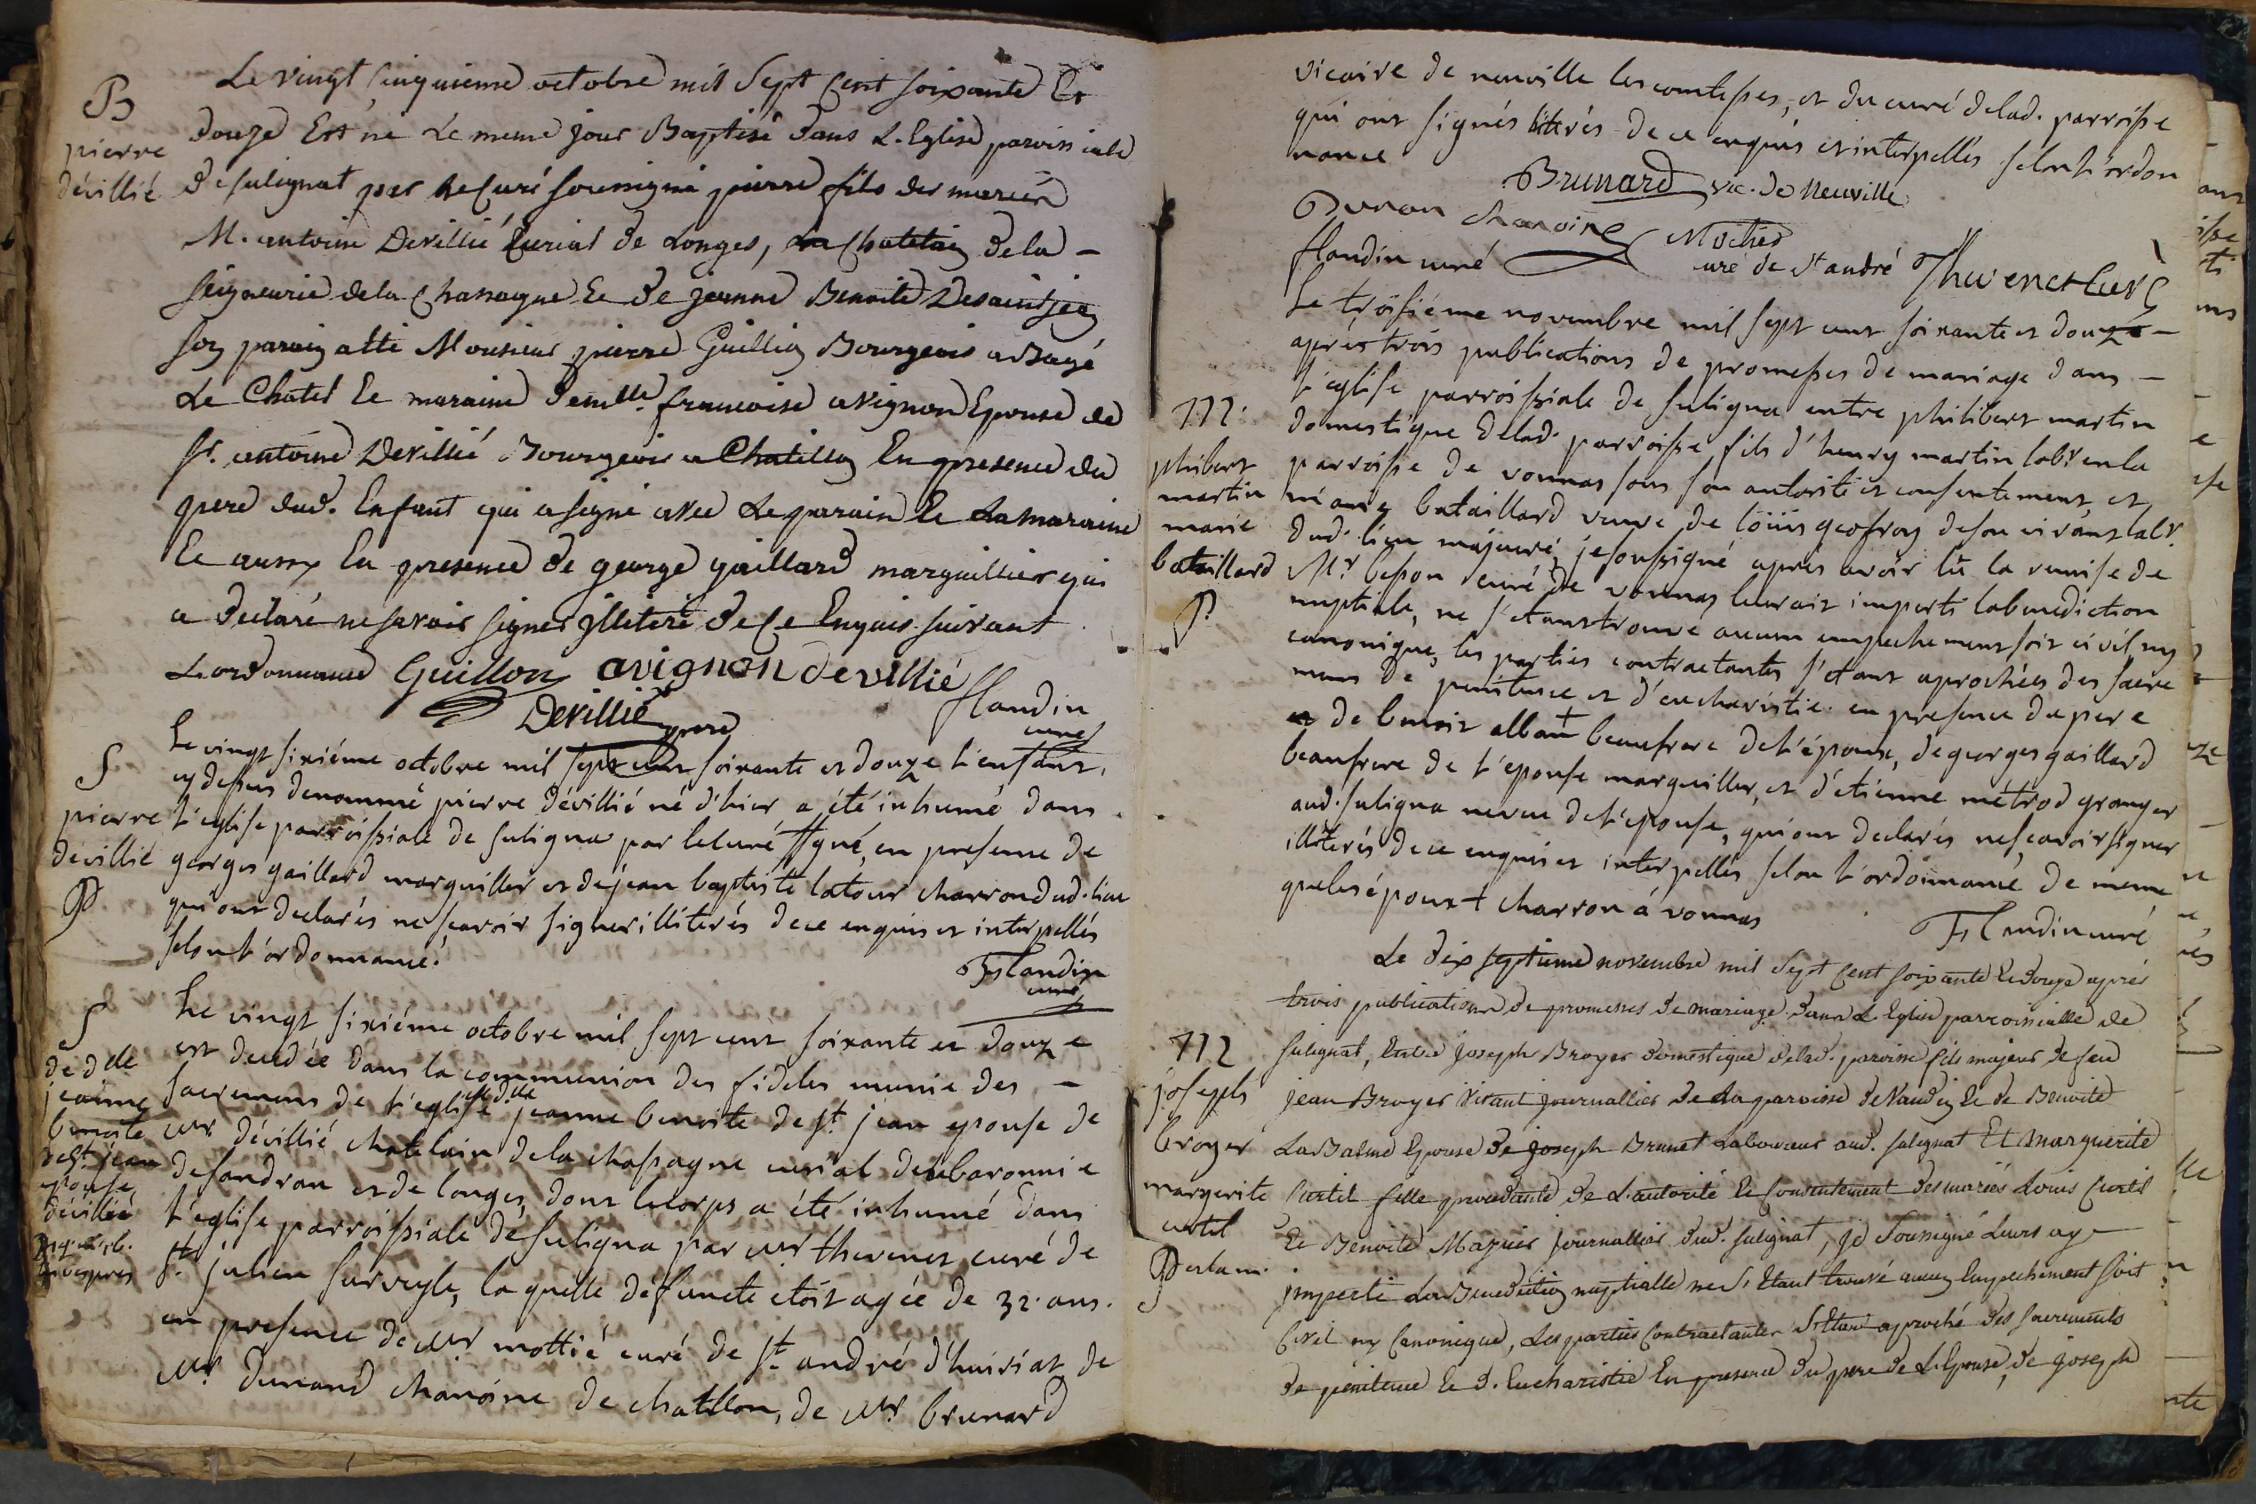 B
pierre
dévillié
Le vingt cinquieme octobre mil Sept Cent soixante Et
douze Est né Le meme jour Baptisé dans L. Eglise paroissiale
de sulignat par le Curé soussigné pierre fils des mariés
M. antoine Devillié Curial de Longes, Chatelain dela -
seigneurie dela Chassagne Et de jeanne Benoite Desaintjean
son parain a été Monsieur pierre Guillon Bourgeois a Bagé
Le Chatel Et maraine Demlle. francoise avignon Epouse de
Sr. antoine Devillié Bourgeois a Chatillon En presence du
pere dud. Enfant qui a signé avec Le parain Et La maraine
Et aussy En presence de george gaillard marguillier qui
a declaré ne savoir signer jlleteré de Ce Enquis suivant
L. ordonnance Guillon avignon devillié
Devillié pere
flandin
curé
S
pierre
devillié
P.
Le vingt sixiéme octobre mil sept cent soixante et douze l'enfant,
cy dessus denommé pierre dévillié né d'hier a été inhumé dans
l'eglise parroissiale de suligna par le curé ssgné, en presence de
georges gaillard marguiller et de jean baptiste latour charron dud. lieu
qui ont declarés ne scavoir signer illiterés de ce enquis et interpellés
selon l'ordonnance.
Flandin
curé
S
de dlle
jeanne
benoite
de St. jean
epouse
dévillié
Le vingt sixiéme octobre mil sept cent soixante et douze
est decedée dans la communion des fideles munie des -
sacremens de l'eglise dlle jeanne benoite de St. jean epouse de
Mr dévillié chatelain dela chassagne curial de la baronnie
de sandran et de longes, dont le corps a été inhumé dans
l'eglise parroissiale de suligna par Mr thevenet curé de
St. julien sur veyle, la quelle défuncte étoit agée de 32. ans.
en presence de Mr mottié curé de St. andré d'huiriat, de
Mr. Dunand chanoine de chatillon, de Mr. brunard
vicaire de neuville les comtesses, et du curé de lad. parroisse
qui ont signés de ce enquis et interpellés selon l'ordon
nance
Brunard vic. de Neuville
Dunan chanoine
flandin curé
curé de St andré
Thevenet Curé
772.
philibert
martin
marie
bataillard
P.
Le troisiéme novembre mil sept cent soixante et douze -
aprés trois publications de promesses de mariage dans -
l'eglise parroissiale de suligna entre philibert martin
domestique de lad. parroisse fils d'henry martin labr. en la
parroisse de vonnas sous son autorité et consentement, et
marie bataillard veuve de loüis geofray de son vivant labr.
dud. lieu majeure, je soussigné aprés avoir lû la remise de
Mr. besson curé de vonnas leur ait imparti la benediction
nuptiale, ne s'etant trouvé aucun empechement soit civil ny
canonique, les parties contractantes s'etant aprochées des sacre
mens de penitence et d'eucharistie. en presence du pere
de benoit alban + beaufrere de l'époux, de georges gaillard
beaufrere de l'epouse marguiller, et d'etienne métrod granger
aud. suligna neveu de l'epouse, qui ont declarés ne scavoir signer
illiterés de ce enquis et interpellés selon l'ordonnance de meme
que les époux + charron á vonnas
Flandin curé
772
joseph
broyer
margerite
curtil
Le dix septieme novembre mil Sept Cent soixante Et douze aprés
trois publications de promesses de mariage dans L. Eglise parroissialle de
sulignat, Entre Joseph Broyer domestique de lad. paroisse fils majeur de feu
jean Broyer vivant journallier de La paroisse de Et de Benoite
LaBalme Epouse de joseph Brunet Laboureur aud. sulignat Et marguerite
Curtil fille procedante de L. autorité Et Consentement des mariés Louis Curtil
Et Benoite Mazuir journallier dud. sulignat, je soussigné Leurs ay
jmparti La Benediction nuptialle ne s. Etant trouvé aucun Empechement soit
Civil ny Canonique, Les parties Contractantes s. Etant aproché des sacrements
de penitence Et d. Eucharistie En presence du pere de L. Epouse, de joseph